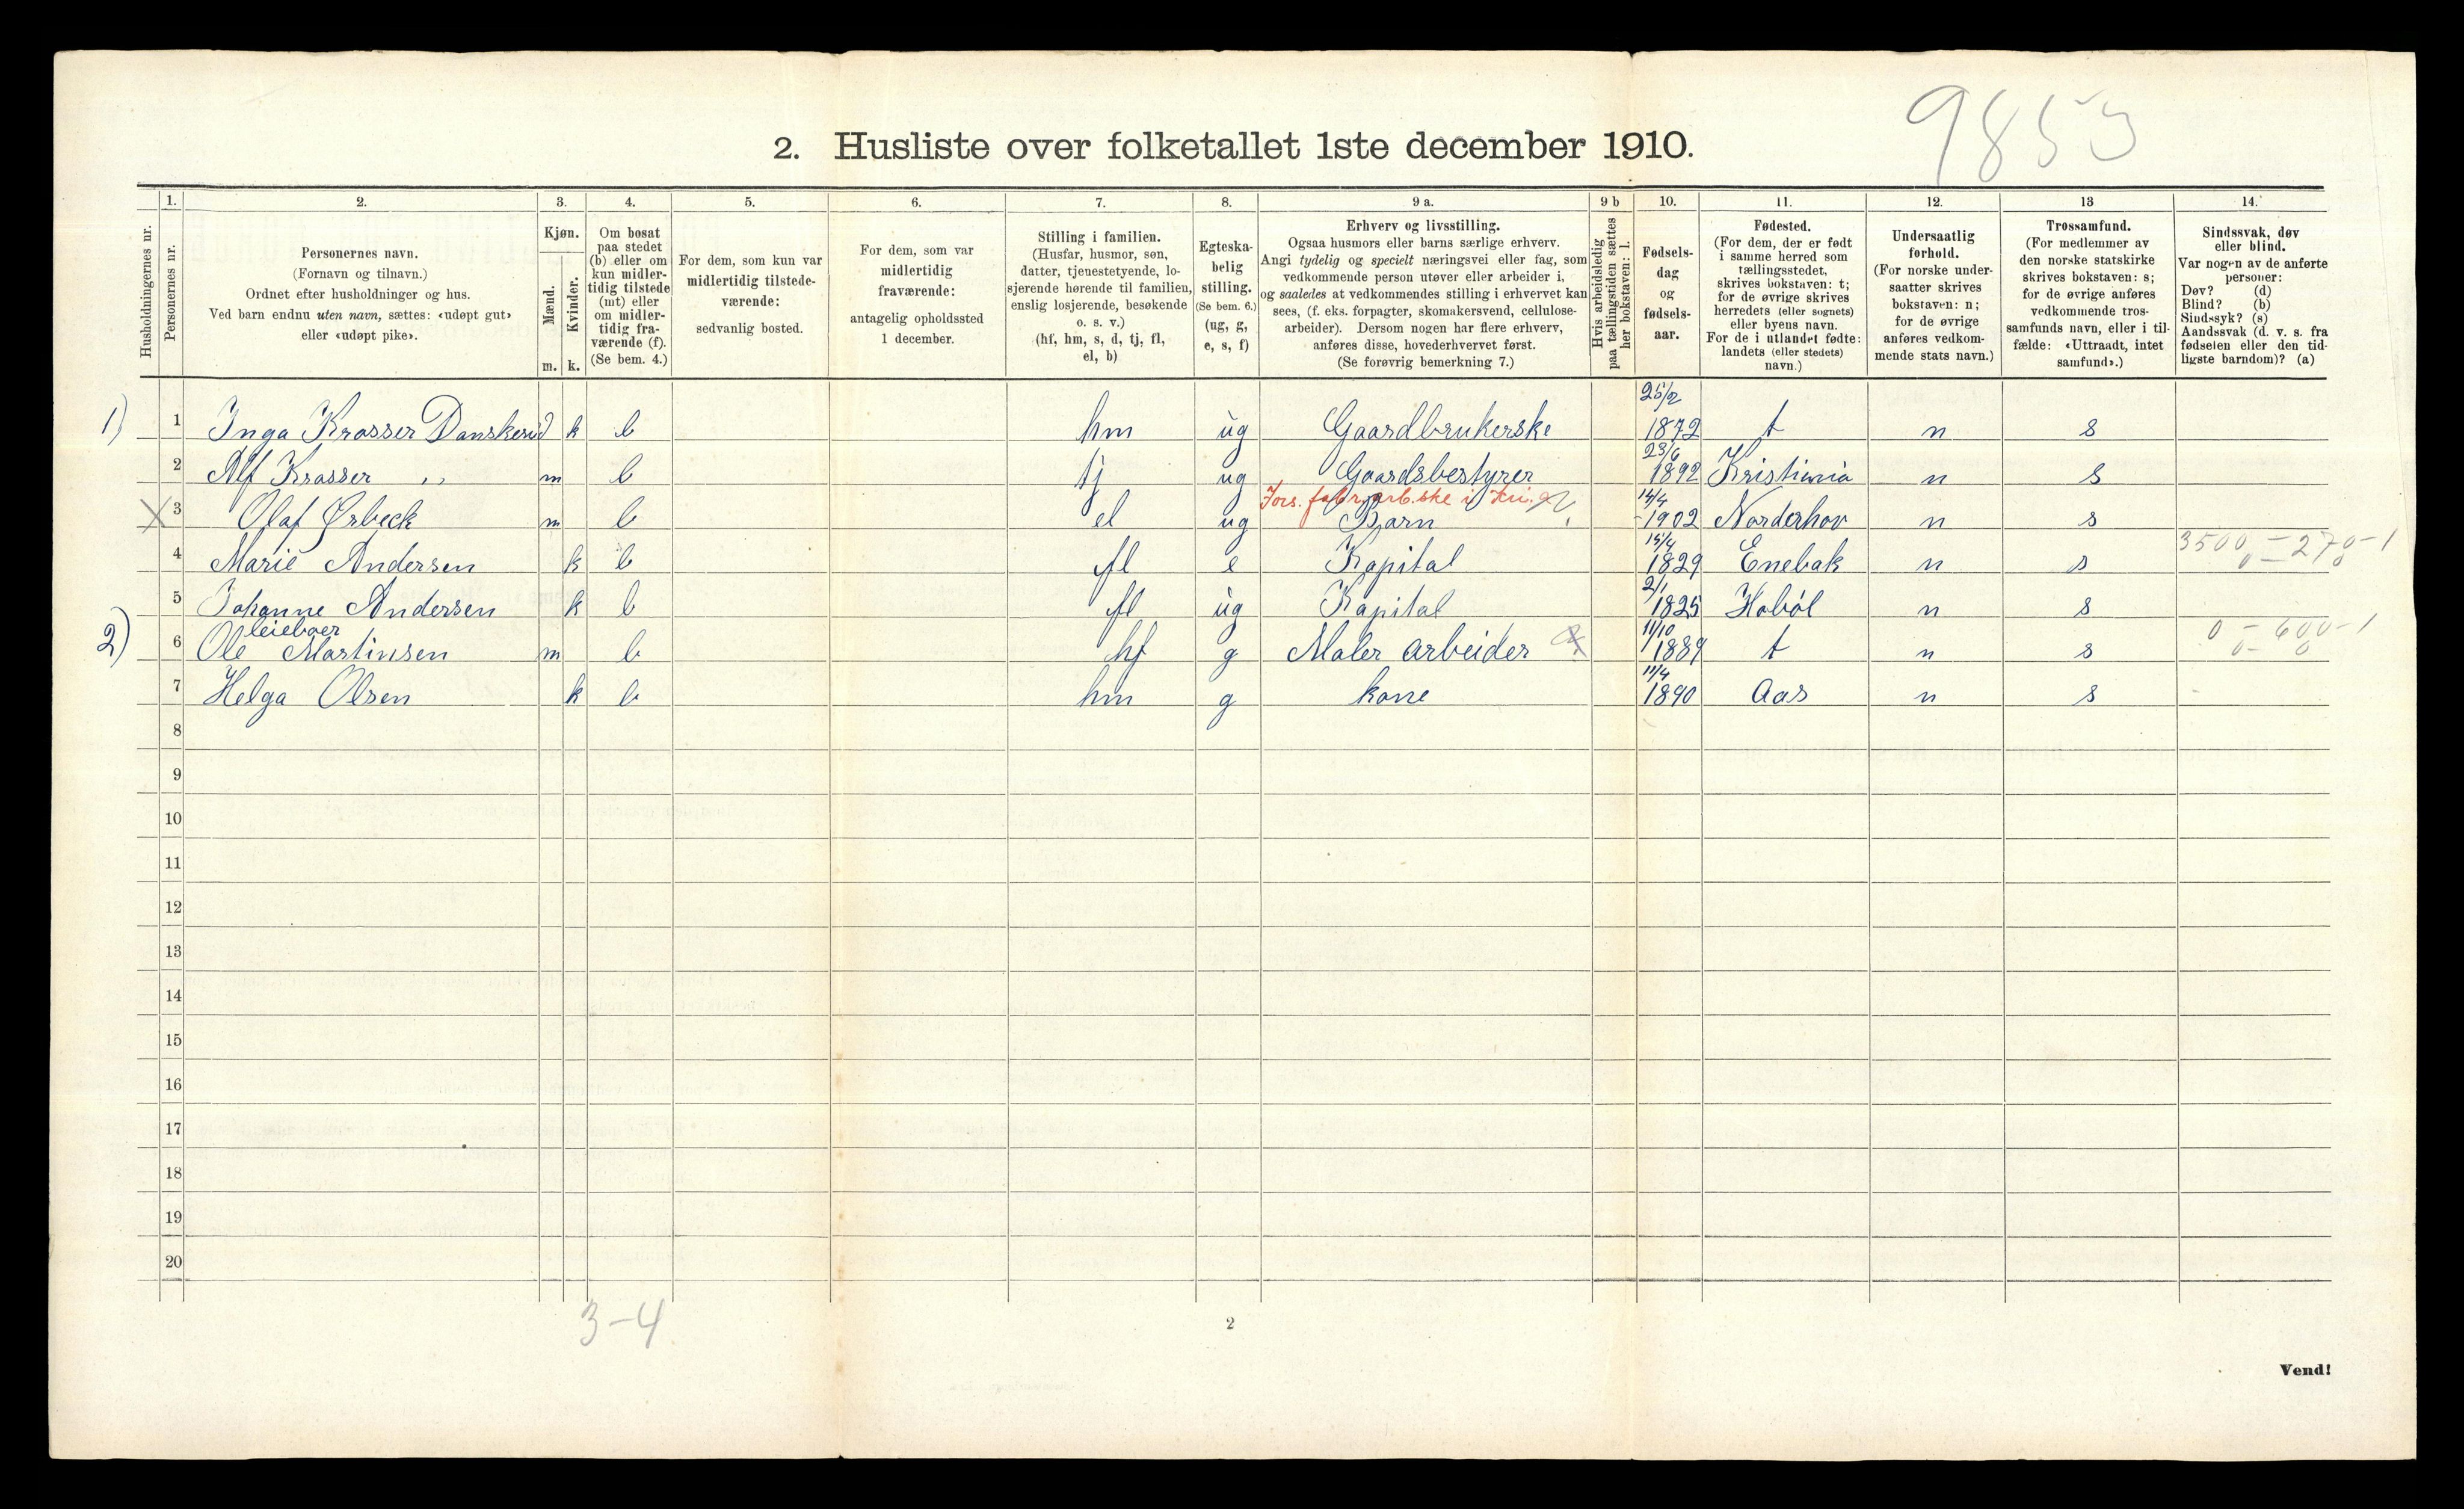 9853
2. Husliste over folketallet 1ste december 1910.
Husholdningernes nr.
1.
Personernes nr.
2.
Personernes navn.
(Fornavn og tilnavn.)
Ordnet efter husholdninger og hus.
Ved barn endnu uten navn, sættes: «udøpt gut»
eller «udøpt pike».
3.
Kjøn.
Mænd.
Kvinder.
m. k.
4.
Om bosat
paa stedet
(b) eller om
kun midler-
tidig tilstede
(mt) eller
om midler-
tidig fra-
værende (f).
(Se bem. 4.)
5.
For dem, som kun var
midlertidig tilstede-
værende:
sedvanlig bosted.
6.
For dem, som var
midlertidig
fraværende:
antagelig opholdssted
1 december.
7.
Stilling i familien.
(Husfar, husmor, søn,
datter, tjenestetyende, lo-
sjerende hørende til familien,
enslig losjerende, besøkende
o. s. v.)
(hf, hm, s, d, tj, fl,
el, b)
8.
Egteska-
belig
stilling.
(Se bem. 6.)
(ug, g,
e, s, f)
9 a.
Erhverv og livsstilling.
Ogsaa husmors eller barns særlige erhverv.
Angi tydelig og specielt næringsvei eller fag, som
vedkommende person utøver eller arbeider i,
og saaledes at vedkommendes stilling i erhvervet kan
sees, (f. eks. forpagter, skomakersvend, cellulose-
arbeider). Dersom nogen har flere erhverv,
anføres disse, hovederhvervet først.
(Se forøvrig bemerkning 7.)
9 b
Hvis arbeidsledig
paa tællingstiden sættes
her bokstaven: l.
10.
Fødsels-
dag
og
fødsels-
aar.
11.
Fødested.
(For dem, der er født
i samme herred som
tællingsstedet,
skrives bokstaven: t;
for de øvrige skrives
herredets (eller sognets)
eller byens navn.
For de i utlandet fødte:
landets (eller stedets)
navn.)
12.
Undersaatlig
forhold.
(For norske under-
saatter skrives
bokstaven: n;
for de øvrige
anføres vedkom-
mende stats navn.)
13
Trossamfund.
(For medlemmer av
den norske statskirke
skrives bokstaven: s;
for de øvrige anføres
vedkommende tros-
samfunds navn, eller i til-
fælde: «Uttraadt, intet
samfund».)
14.
Sindssvak, døv
eller blind.
Var nogen av de anførte
personer:
Døv? (d)
Blind? (b)
Sindssyk? (s)
Aandssvak (d. v. s. fra
fødselen eller den tid-
ligste barndom)? (a)
1) 1 Inga Krosser Danskerud k b hm ug Gaardbrukerske 25/2 1872 t n s
2 Alf Krosser " m b tj ug Gaardsbestyrer 23/6 1892 Kristiania n s
Fors. fabr.arb.ske i Kri.
X 3 Olaf Ørbeck m b el ug Barn 14/4 1902 Norderhov n s
4 Marie Andersen k b fl e Kapital 15/4 1829 Enebak n s 3500 - 270 - 1
5 Johanne Andersen k b fl ug Kapital 2/1 1825 Hobøl n s
leieboer
2) 6 Ole Martinsen m b hf g Maler arbeider 11/10 1889 t n s 0 - 600 - 1
7 Helga Olsen k b hm g kone 11/4 1890 Aas n s
8
9
10
11
12
13
14
15
16
17
18
19
20
3-4
2
Vend!